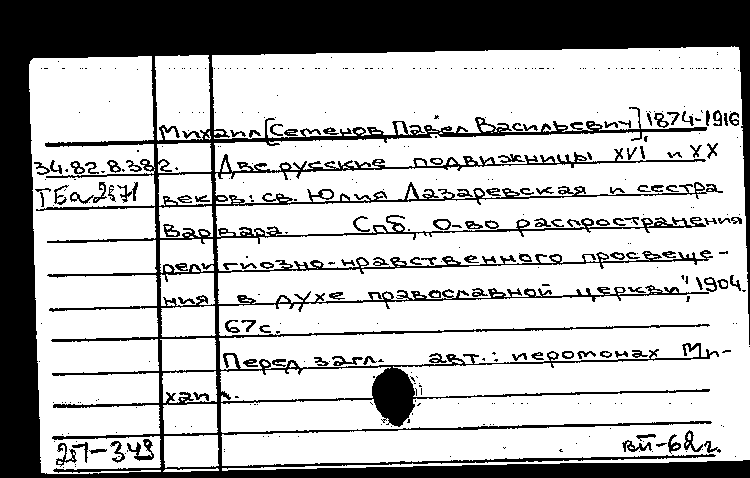 Михаил [Семенов, Павел Васильевич] 1874-1916
34.82.8.382. Две русские подвижницы XVI и XX
веков: св. Юлия Лазаревская и сестра
Варвара. Спб, „О-во распространения
религиозно-нравственного просвеще-
ния в духе православной церкви", 1904.
67с.
Перед загл. авт.: иеромонах Ми-
хаил.
2П-349 вп-62г.